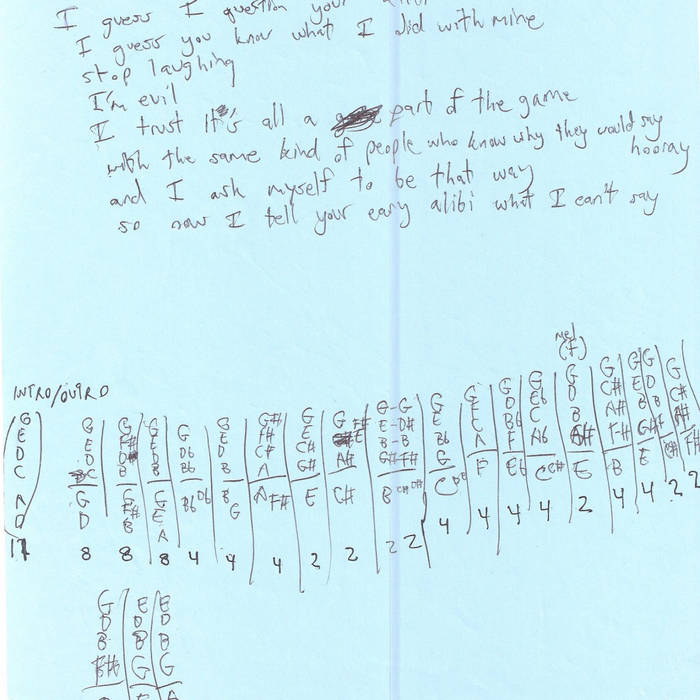 I guess I question your
I guess you know what I did with mine
stop laughing
I'm evil
I trust it's all a part of the game
with the same kind of people who know why they would say
hooray
and I ask myself to be that way
so now I tell your easy alibi what I can't say
mel
(F)
INTRO/OUTRO
G G G G G G# G G G-G G G G G G G GG G
E F# E Db E F# E F# E-D# E E D Eb D C# ED C#
D D D Bb D C# C# A# B-B Bb C Bb C B A# BB
C B B B A G# G#-F# G A F Ab G# F# G#
G G G Bb Db B A F# E C# B C# D# C Db F Eb C C# E B E F#
D F# E G
B A
17 8 8 8 4 4 4 2 2 2 2 4 4 4 4 2 4 4 2 2
G E E
D D D
B B B
F# G G